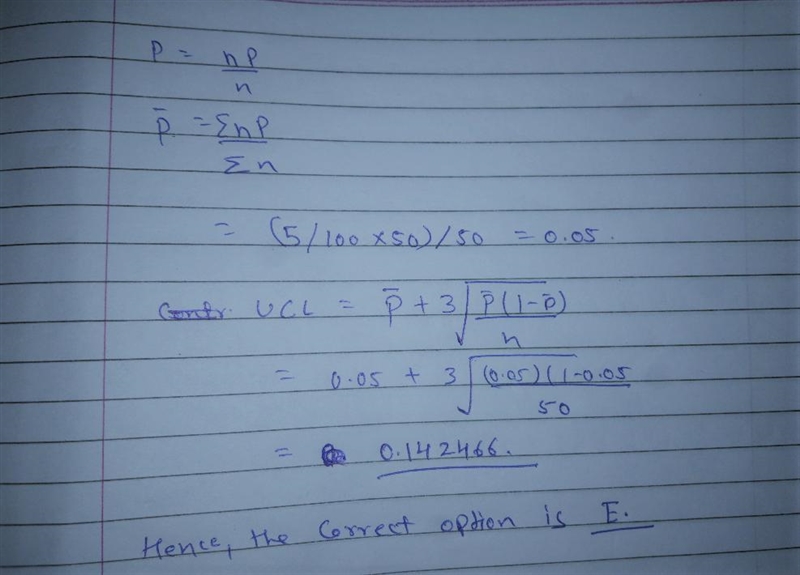 P = nP / n
p̄ = ΣnP / Σn
= (5/100 × 50) / 50 = 0.05.
UCL = p̄ + 3√(p̄(1-p̄) / n)
= 0.05 + 3√((0.05)(1-0.05 / 50)
= 0.142466.
Hence, the Correct option is E.